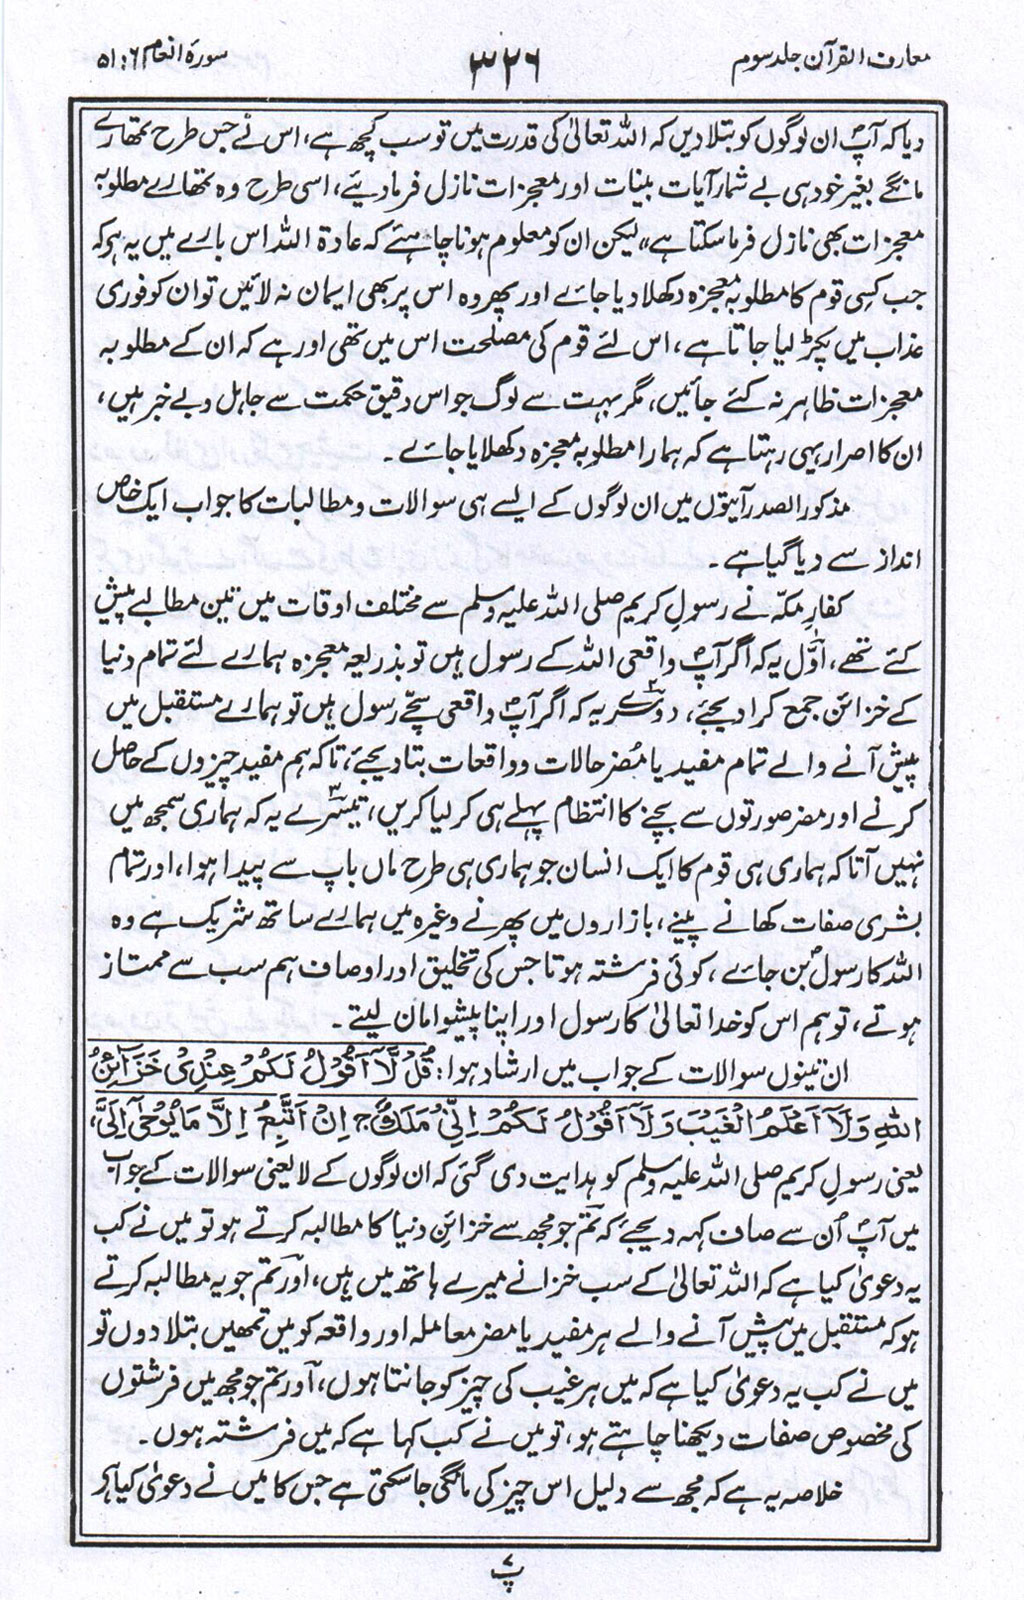 معارف القرآن جلد سوم
۳۲۶
سورۃ انعام ۶ : ۵۱
دیا کہ آپؐ ان لوگوں کو بتلا دیں کہ اللہ تعالیٰ کی قدرت میں تو سب کچھ ہے، اس نے جس طرح تمھارے
مانگے بغیر خود ہی بے شمار آیات بینات اور معجزات نازل فرما دیئے، اسی طرح وہ تمھارے مطلوبہ
معجزات بھی نازل فرما سکتا ہے، لیکن ان کو معلوم ہونا چاہئے کہ عادۃ اللہ اس بارے میں یہ ہو کہ
جب کسی قوم کا مطلوبہ معجزہ دکھلا دیا جائے اور پھر وہ اس پر بھی ایمان نہ لائیں تو ان کو فوری
عذاب میں پکڑ لیا جاتا ہے، اس لئے قوم کی مصلحت اس میں تھی اور ہے کہ ان کے مطلوبہ
معجزات ظاہر نہ کئے جائیں، مگر بہت سے لوگ جو اس دقیق حکمت سے جاہل و بے خبر ہیں،
ان کا اصرار یہی رہتا ہے کہ ہمارا مطلوبہ معجزہ دکھلایا جائے۔
مذکور الصدر آیتوں میں ان لوگوں کے ایسے ہی سوالات و مطالبات کا جواب ایک خاص
انداز سے دیا گیا ہے۔
کفارِ مکہ نے رسولِ کریم صلی اللہ علیہ وسلم سے مختلف اوقات میں تین مطالبے پیش
کئے تھے، اوّل یہ کہ اگر آپؐ واقعی اللہ کے رسول ہیں تو بذریعہ معجزہ ہمارے لئے تمام دنیا
کے خزائن جمع کرا دیجئے، دوسرے یہ کہ اگر آپؐ واقعی سچے رسول ہیں تو ہمارے مستقبل میں
پیش آنے والے تمام مفید یا مُضر حالات و واقعات بتا دیجئے، تاکہ ہم مفید چیزوں کے حاصل
کرنے اور مضر صورتوں سے بچنے کا انتظام پہلے ہی کر لیا کریں، تیسرے یہ کہ ہماری سمجھ میں
نہیں آتا کہ ہماری ہی قوم کا ایک انسان جو ہماری ہی طرح ماں باپ سے پیدا ہوا، اور تمام
بشری صفات کھانے پینے، بازاروں میں پھرنے وغیرہ میں ہمارے ساتھ شریک ہے وہ
اللہ کا رسول بن جائے، کوئی فرشتہ ہوتا جس کی تخلیق اور اوصاف ہم سب سے ممتاز
ہوتے، تو ہم اس کو خدا تعالیٰ کا رسول اور اپنا پیشوا مان لیتے۔
ان تینوں سوالات کے جواب میں ارشاد ہوا: قُلْ لَّآ اَقُوْلُ لَكُمْ عِنْدِیْ خَزَآئِنُ
اللّٰهِ وَلَآ اَعْلَمُ الْغَیْبَ وَلَآ اَقُوْلُ لَكُمْ اِنِّیْ مَلَكٌ ج اِنْ اَتَّبِعُ اِلَّا مَا یُوْحٰٓی اِلَیَّ،
یعنی رسولِ کریم صلی اللہ علیہ وسلم کو ہدایت دی گئی کہ ان لوگوں کے لایعنی سوالات کے جواب
میں آپؐ اُن سے صاف کہہ دیجئے کہ تم جو مجھ سے خزائنِ دنیا کا مطالبہ کرتے ہو تو میں نے کب
یہ دعویٰ کیا ہے کہ اللہ تعالیٰ کے سب خزانے میرے ہاتھ میں ہیں، اور تم جو یہ مطالبہ کرتے
ہو کہ مستقبل میں پیش آنے والے ہر مفید یا مضر معاملہ اور واقعہ کو میں تمھیں بتلا دوں تو
میں نے کب یہ دعویٰ کیا ہے کہ میں ہر غیب کی چیز کو جانتا ہوں، اور تم جو مجھ میں فرشتوں
کی مخصوص صفات دیکھنا چاہتے ہو، تو میں نے کب کہا ہے کہ میں فرشتہ ہوں۔
خلاصہ یہ ہے کہ مجھ سے دلیل اس چیز کی مانگی جا سکتی ہے جس کا میں نے دعویٰ کیا ہو
پ۷